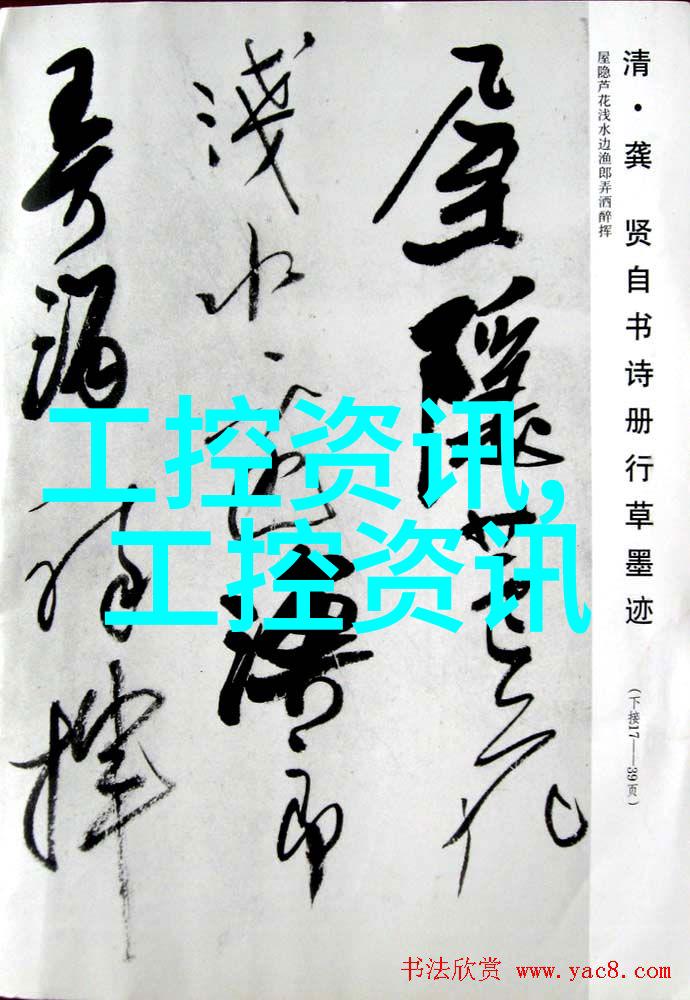 清·龚 贤自书诗册行草墨迹
(下接17——39页)
屋隐芦花浅水边渔郎弄洒醉挥
屋隱芦花
淺水边漁郎
弄酒醉揮
工控资讯,
工控资讯
书法欣赏 www.yac8.com